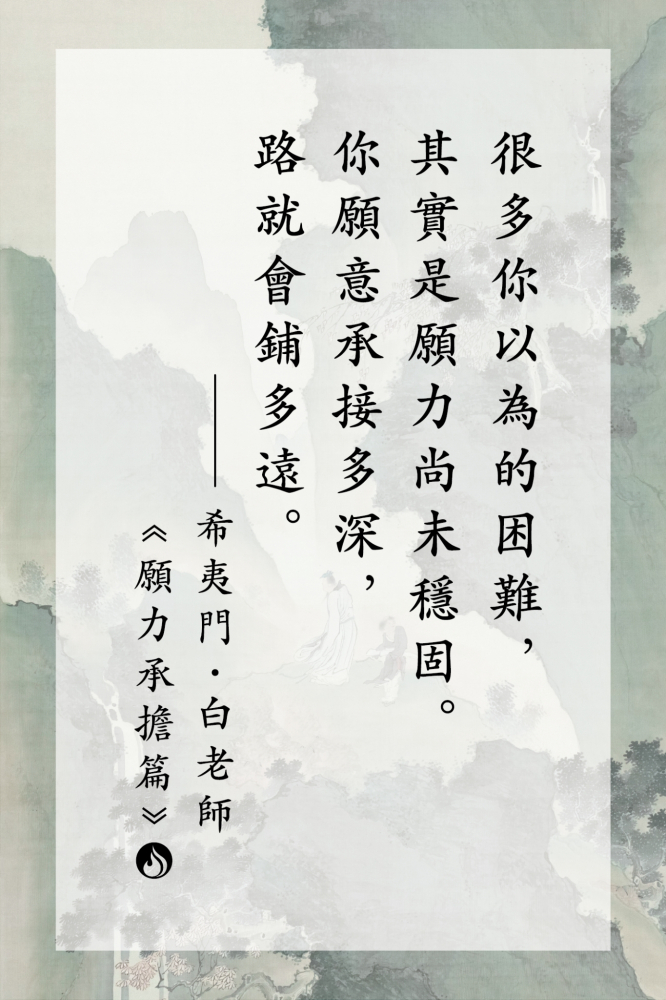 很多你以為的困難，
其實是願力尚未穩固。
你願意承接多深，
路就會鋪多遠。
——希夷門·白老師
《願力承擔篇》